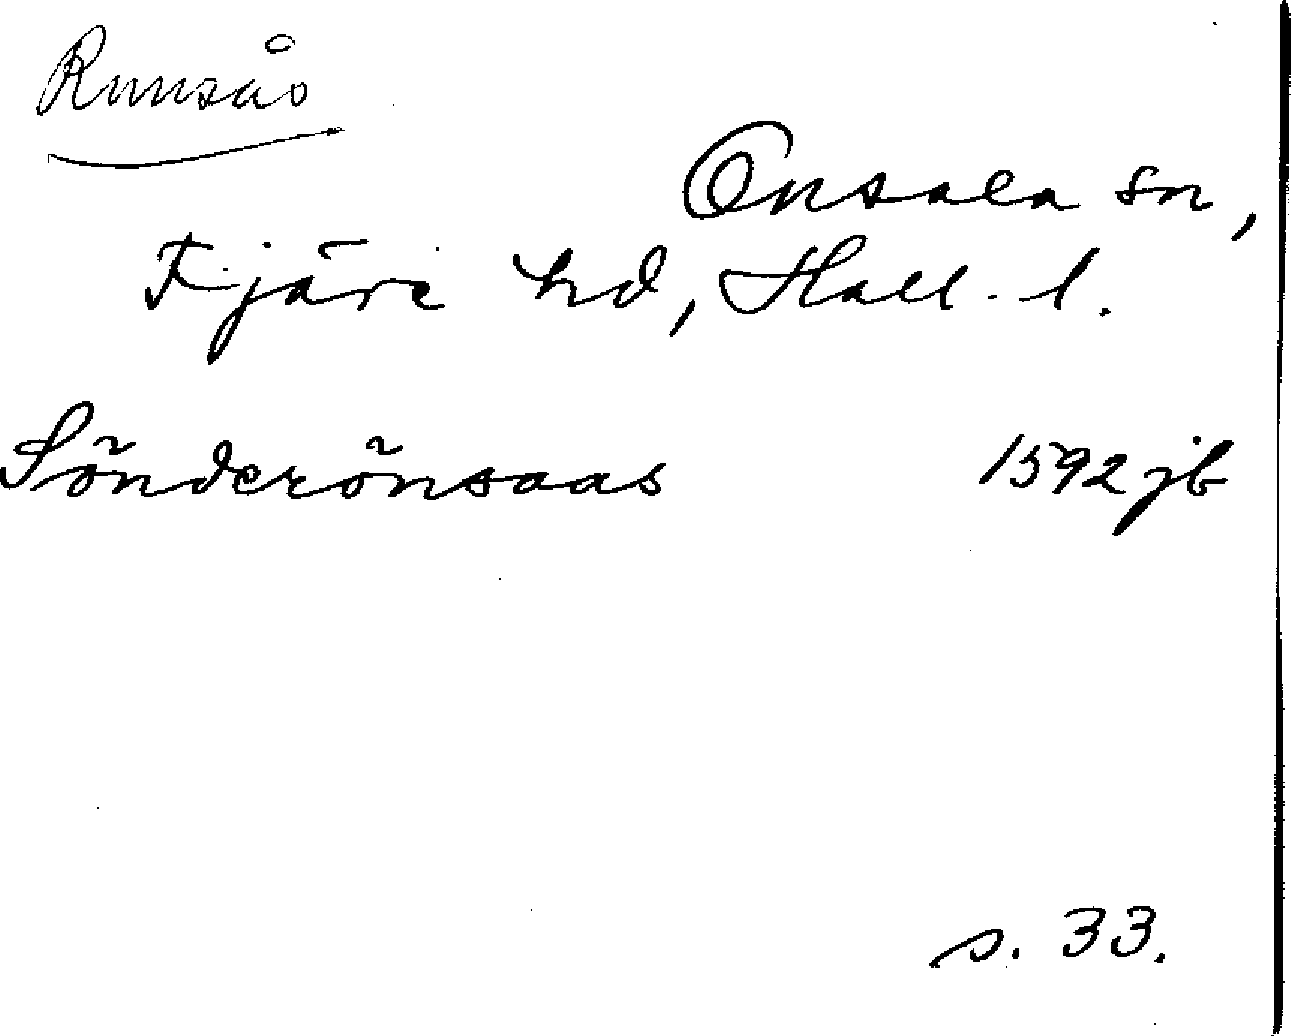 Runsås
Onsala sn,
Fjäre hd, Hall. l.
Sönderönsaas 1592 jb
s. 33.